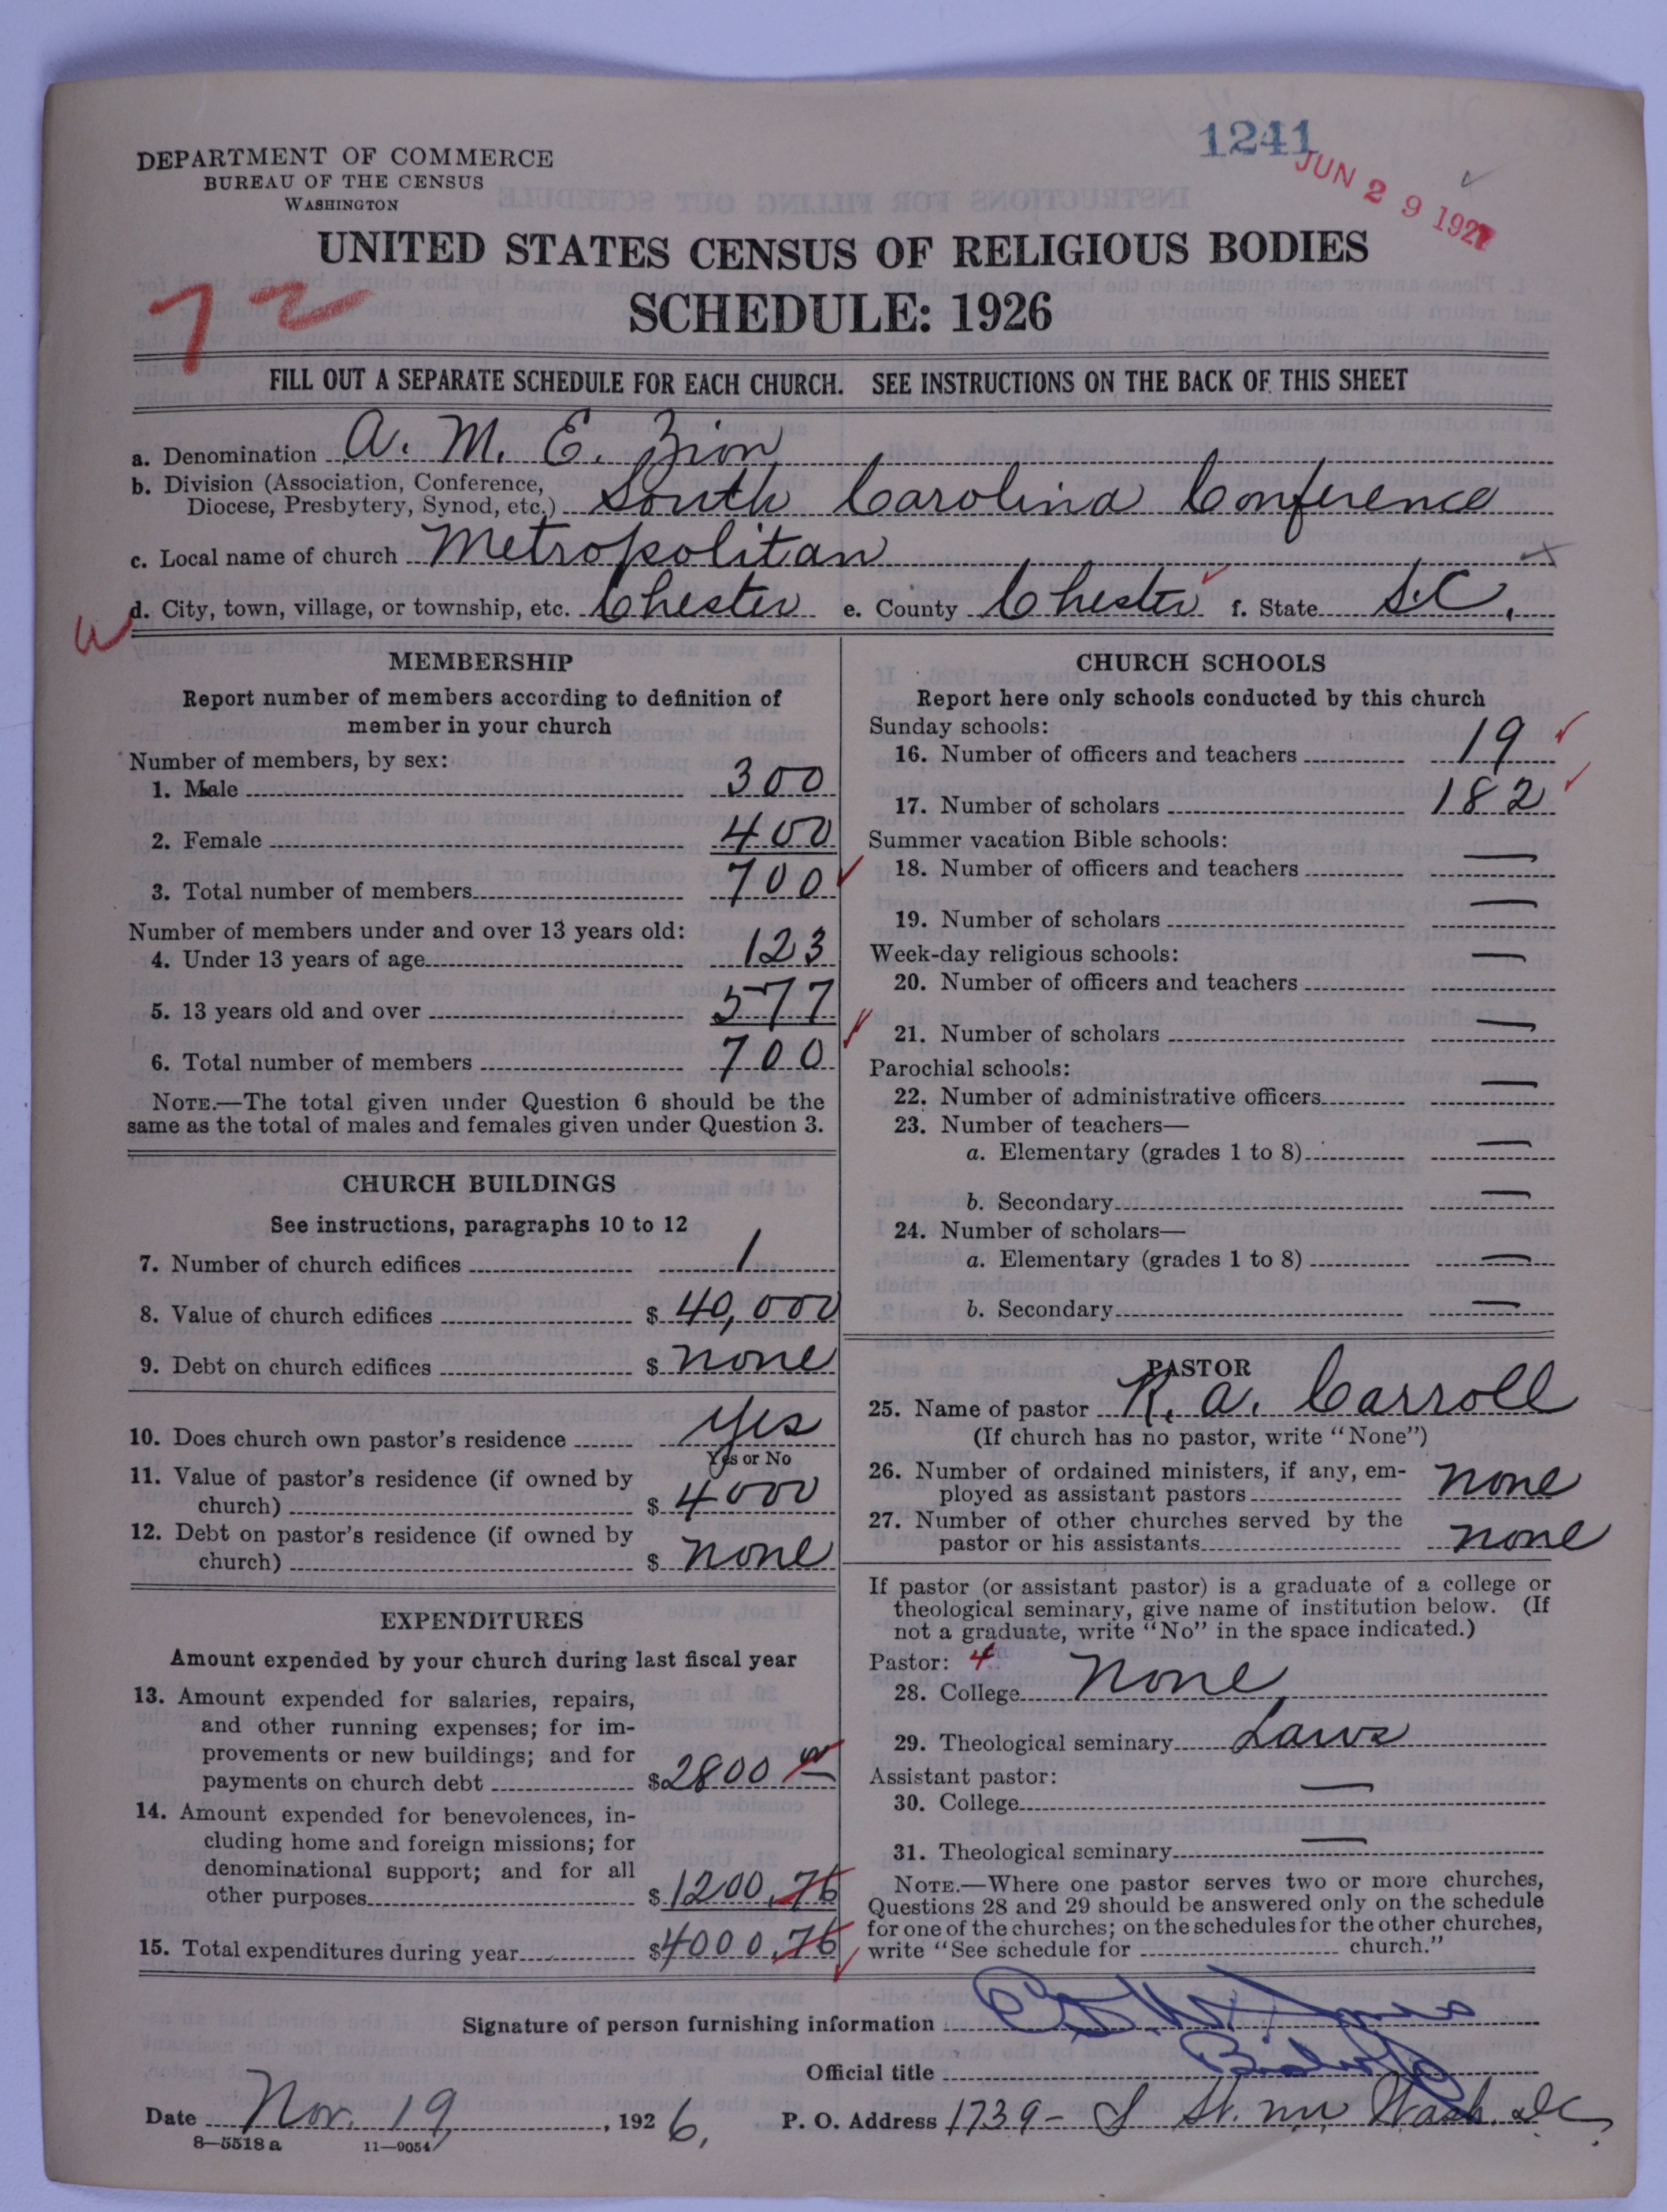 1241
JUN 29 1927
DEPARTMENT OF COMMERCE
BUREAU OF THE CENSUS
WASHINGTON
UNITED STATES CENSUS OF RELIGIOUS BODIES
SCHEDULE: 1926
72
FILL OUT A SEPARATE SCHEDULE FOR EACH CHURCH. SEE INSTRUCTIONS ON THE BACK OF THIS SHEET
a. Denomination A. M. E. Zion
b. Division (Association, Conference,
Diocese, Presbytery, Synod, etc.) South Carolina Conference
c. Local name of church Metropolitan
d. City, town, village, or township, etc. Chester e. County Chester f. State S.C.
MEMBERSHIP
Report number of members according to definition of
member in your church
Number of members, by sex:
1. Male 300
2. Female 400
3. Total number of members 700
Number of members under and over 13 years old:
4. Under 13 years of age 123
5. 13 years old and over 577
6. Total number of members 700
NOTE.—The total given under Question 6 should be the
same as the total of males and females given under Question 3.
CHURCH BUILDINGS
See instructions, paragraphs 10 to 12
7. Number of church edifices 1
8. Value of church edifices $ 40,000
9. Debt on church edifices $ none
10. Does church own pastor's residence yes
Yes or No
11. Value of pastor's residence (if owned by
church) $ 4000
12. Debt on pastor's residence (if owned by
church) $ none
EXPENDITURES
Amount expended by your church during last fiscal year
13. Amount expended for salaries, repairs,
and other running expenses; for im-
provements or new buildings; and for
payments on church debt $ 2800
14. Amount expended for benevolences, in-
cluding home and foreign missions; for
denominational support; and for all
other purposes $ 1200.76
15. Total expenditures during year $ 4000.76
CHURCH SCHOOLS
Report here only schools conducted by this church
Sunday schools:
16. Number of officers and teachers 19
17. Number of scholars 182
Summer vacation Bible schools:
18. Number of officers and teachers —
19. Number of scholars —
Week-day religious schools:
20. Number of officers and teachers —
21. Number of scholars —
Parochial schools:
22. Number of administrative officers —
23. Number of teachers—
a. Elementary (grades 1 to 8) —
b. Secondary —
24. Number of scholars—
a. Elementary (grades 1 to 8) —
b. Secondary —
PASTOR
25. Name of pastor R. A. Carroll
(If church has no pastor, write "None")
26. Number of ordained ministers, if any, em-
ployed as assistant pastors none
27. Number of other churches served by the
pastor or his assistants none
If pastor (or assistant pastor) is a graduate of a college or
theological seminary, give name of institution below. (If
not a graduate, write "No" in the space indicated.)
Pastor: 4
28. College none
29. Theological seminary Laws
Assistant pastor:
30. College —
31. Theological seminary —
NOTE.—Where one pastor serves two or more churches,
Questions 28 and 29 should be answered only on the schedule
for one of the churches; on the schedules for the other churches,
write "See schedule for church."
Signature of person furnishing information
Official title Bishop
Date Nov. 19, 1926, P. O. Address 1739- S St. nw Wash. DC.
8—5518a 11—9054